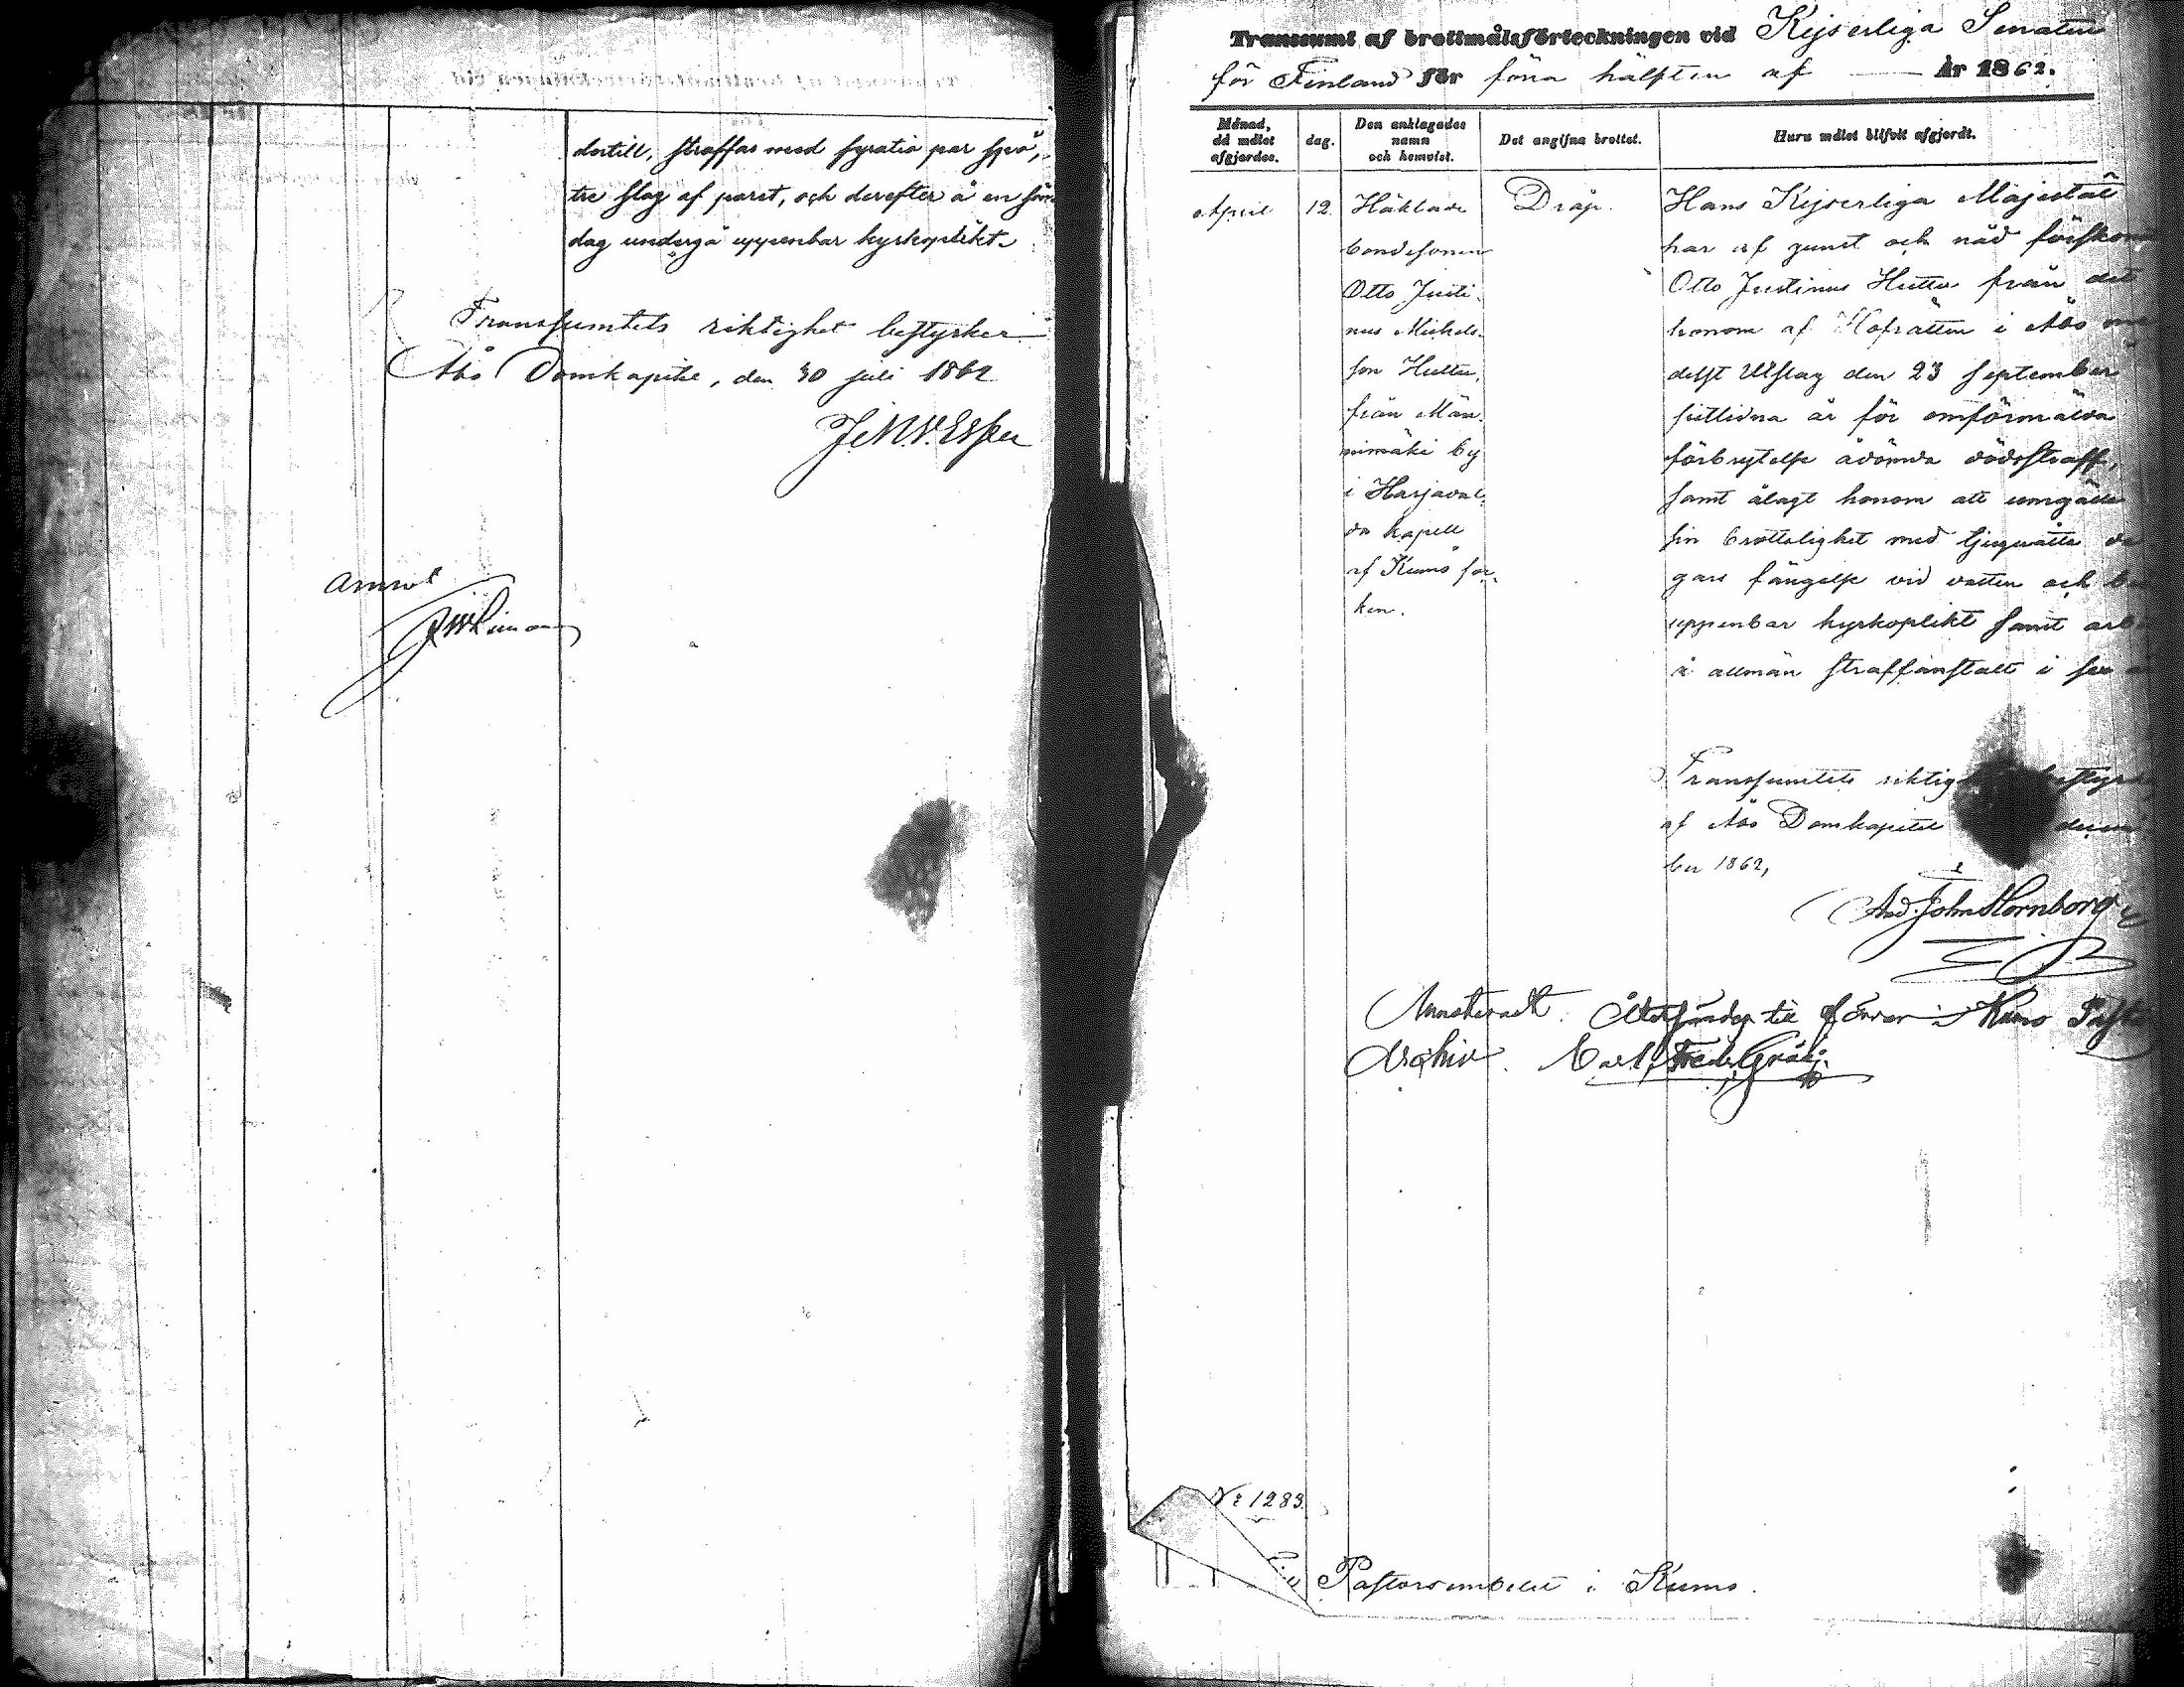 dertill, straffas med fyratio par spö,
tre slag af paret, och derefter å en sön
dag undergå uppenbar kyrkoplikt.
Transsumtets riktighet bestyrker
Åbo Domkapitel, den 30 juli 1862
Transsumt af brottmålsförteckningen vid Kejserliga Senaten
för Finland för förra hälften af År 1862.
Månad, då målet afgjordes.
dag.
Den anklagades namn och hemvist.
Det angifna brottet.
Huru målet blifvit afgjordt.
April
12.
Häktade
bondesonen
Otto Justi-
nus Michels-
son Huttu,
från Män-
nimäki by
i Harjaval-
da kapell
af Kumo soc-
ken.
Dråp.
Hans Kejserliga Majestät
har af gunst och nåd förskon
Otto Justinus Huttu från det
honom af Hofrätten i Åbo me
delst Utslag den 23 September
sistlidna år för omförmälda
förbrytelse ådömda dödsstraff,
samt ålagt honom att umgälla
sin brottslighet med tjuguåtta da
gars fängelse vid vatten och b
uppenbar kyrkoplikt samt arbe
å allmän straffanstalt i sex
Transsumtets riktig bestyrk
af Åbo Domkapitel decem
ber 1862,
And. John Hornborg
Återsändes till Kumo
Archiv. Carl Fredr.
No 1283.
Till Pastorsembetet i Kumo.